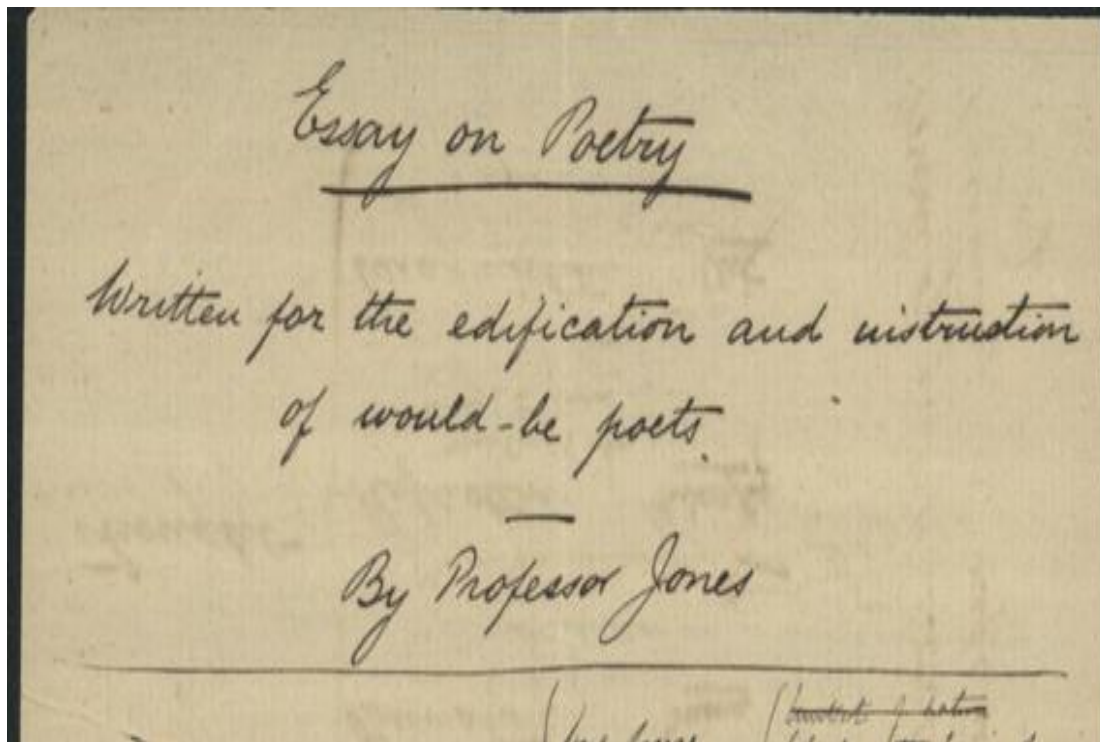 Essay on Poetry
Written for the edification and instruction
of would-be poets.
By Professor Jones